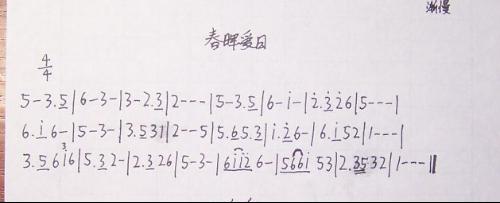 渐慢
春晖爱日
4/4
5-3.5|6-3-|3-2.3|2---|5-3.5|6-i-|i2.3i26|5---|
6.i6-|5-3-|3.531|2--5|5.65.3|i.26-|6.i52|1---|
3.56i6|5.32-|2.326|5-3-|6ii26-|566i53|2.3532|1---‖